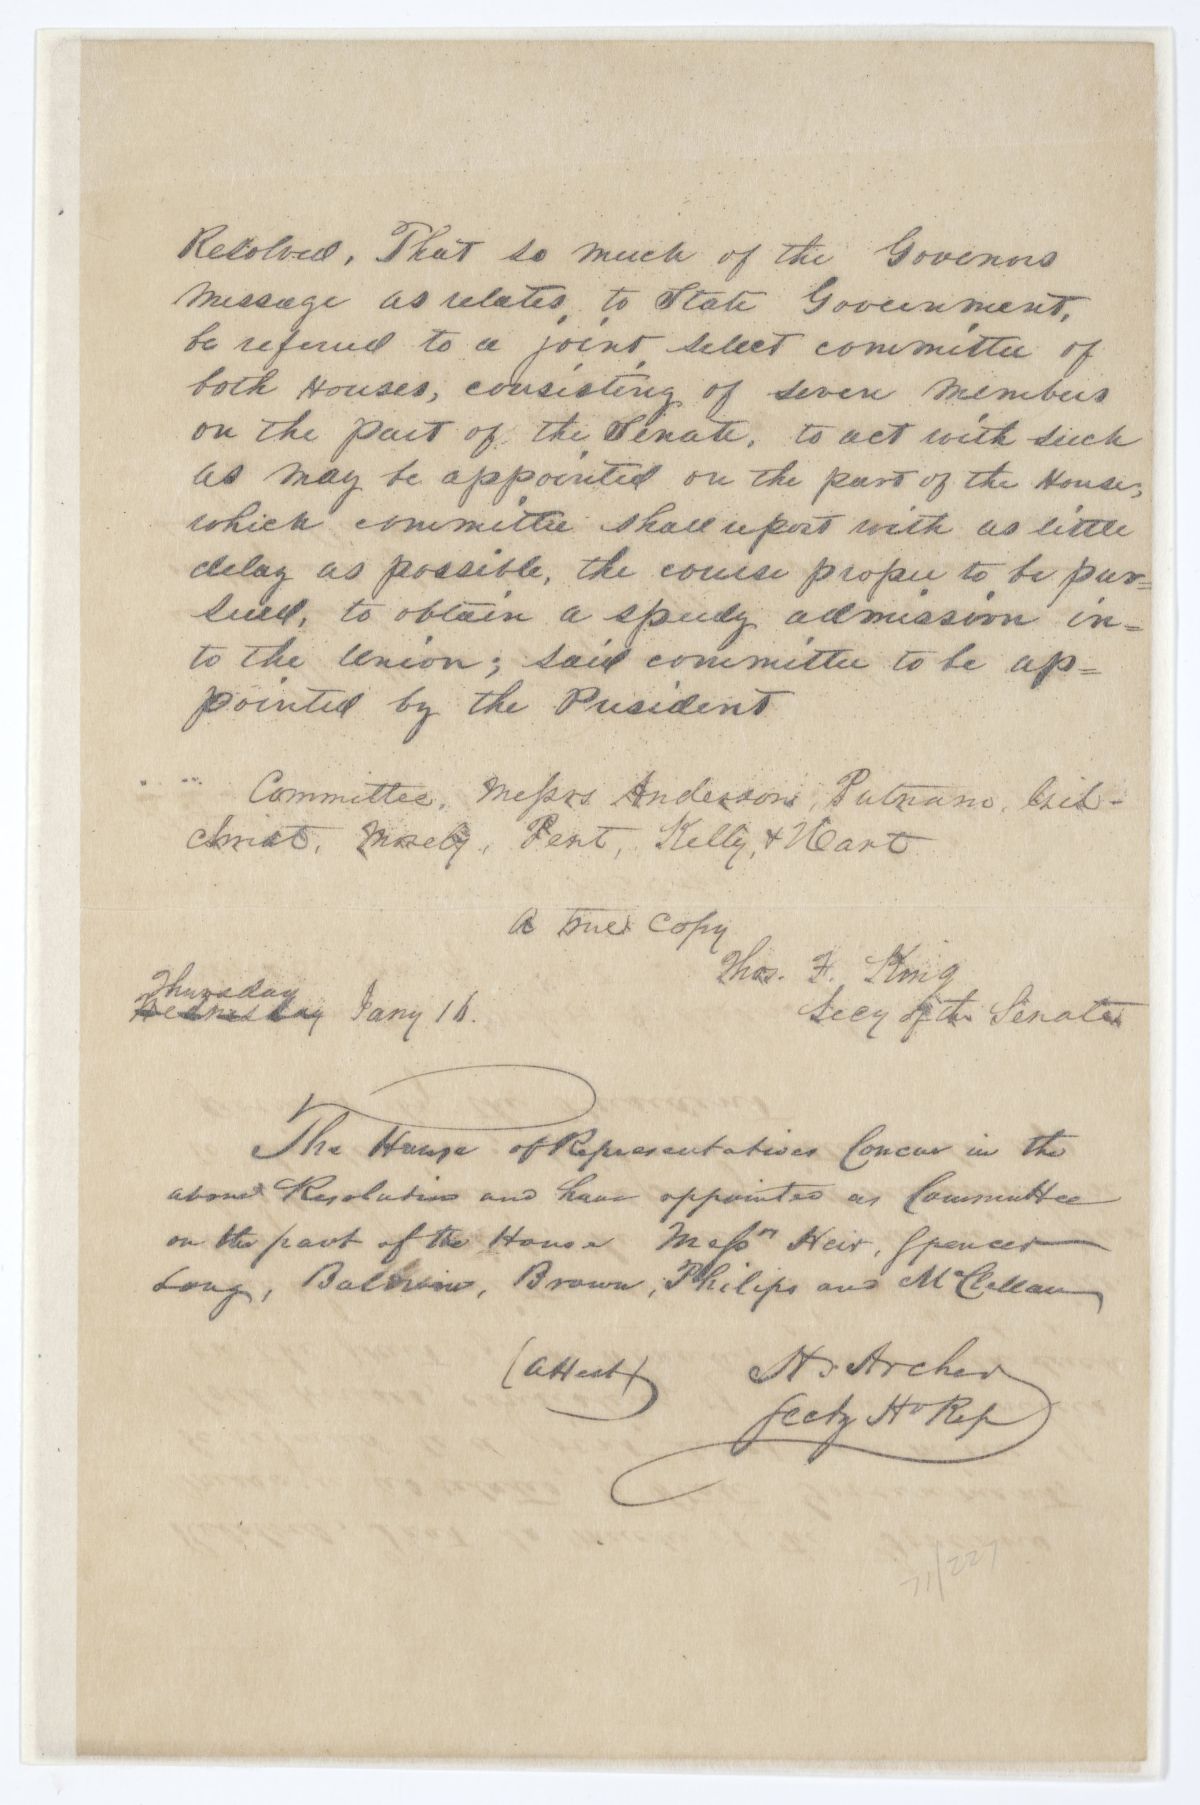 Resolved, That so much of the Govenors
Message as relates to State Government,
be referred to a joint select committee of
both Houses, consisting of seven Members
on the part of the Senate, to act with such
as may be appointed on the part of the House,
which committee shall report with as little
delay as possible, the course proper to be pur=
sued, to obtain a speedy admission in=
to the Union; said committee to be ap=
pointed by the President
Committee, Messrs Anderson, Putnam, Gil-
christ, Mosely, Pent, Kelly, & Wart
A true Copy
Thos. F. King
Thursday
Wednesday Jany 16.
Secy of the Senate
The House of Representatives Concur in the
above Resolution and have appointed as Committee
on the part of the House Messrs Heir, Spencer
Long, Baldwin, Brown, Philips and McClellan
(attest)
H. Archer
Secty Ho Rep
71/227